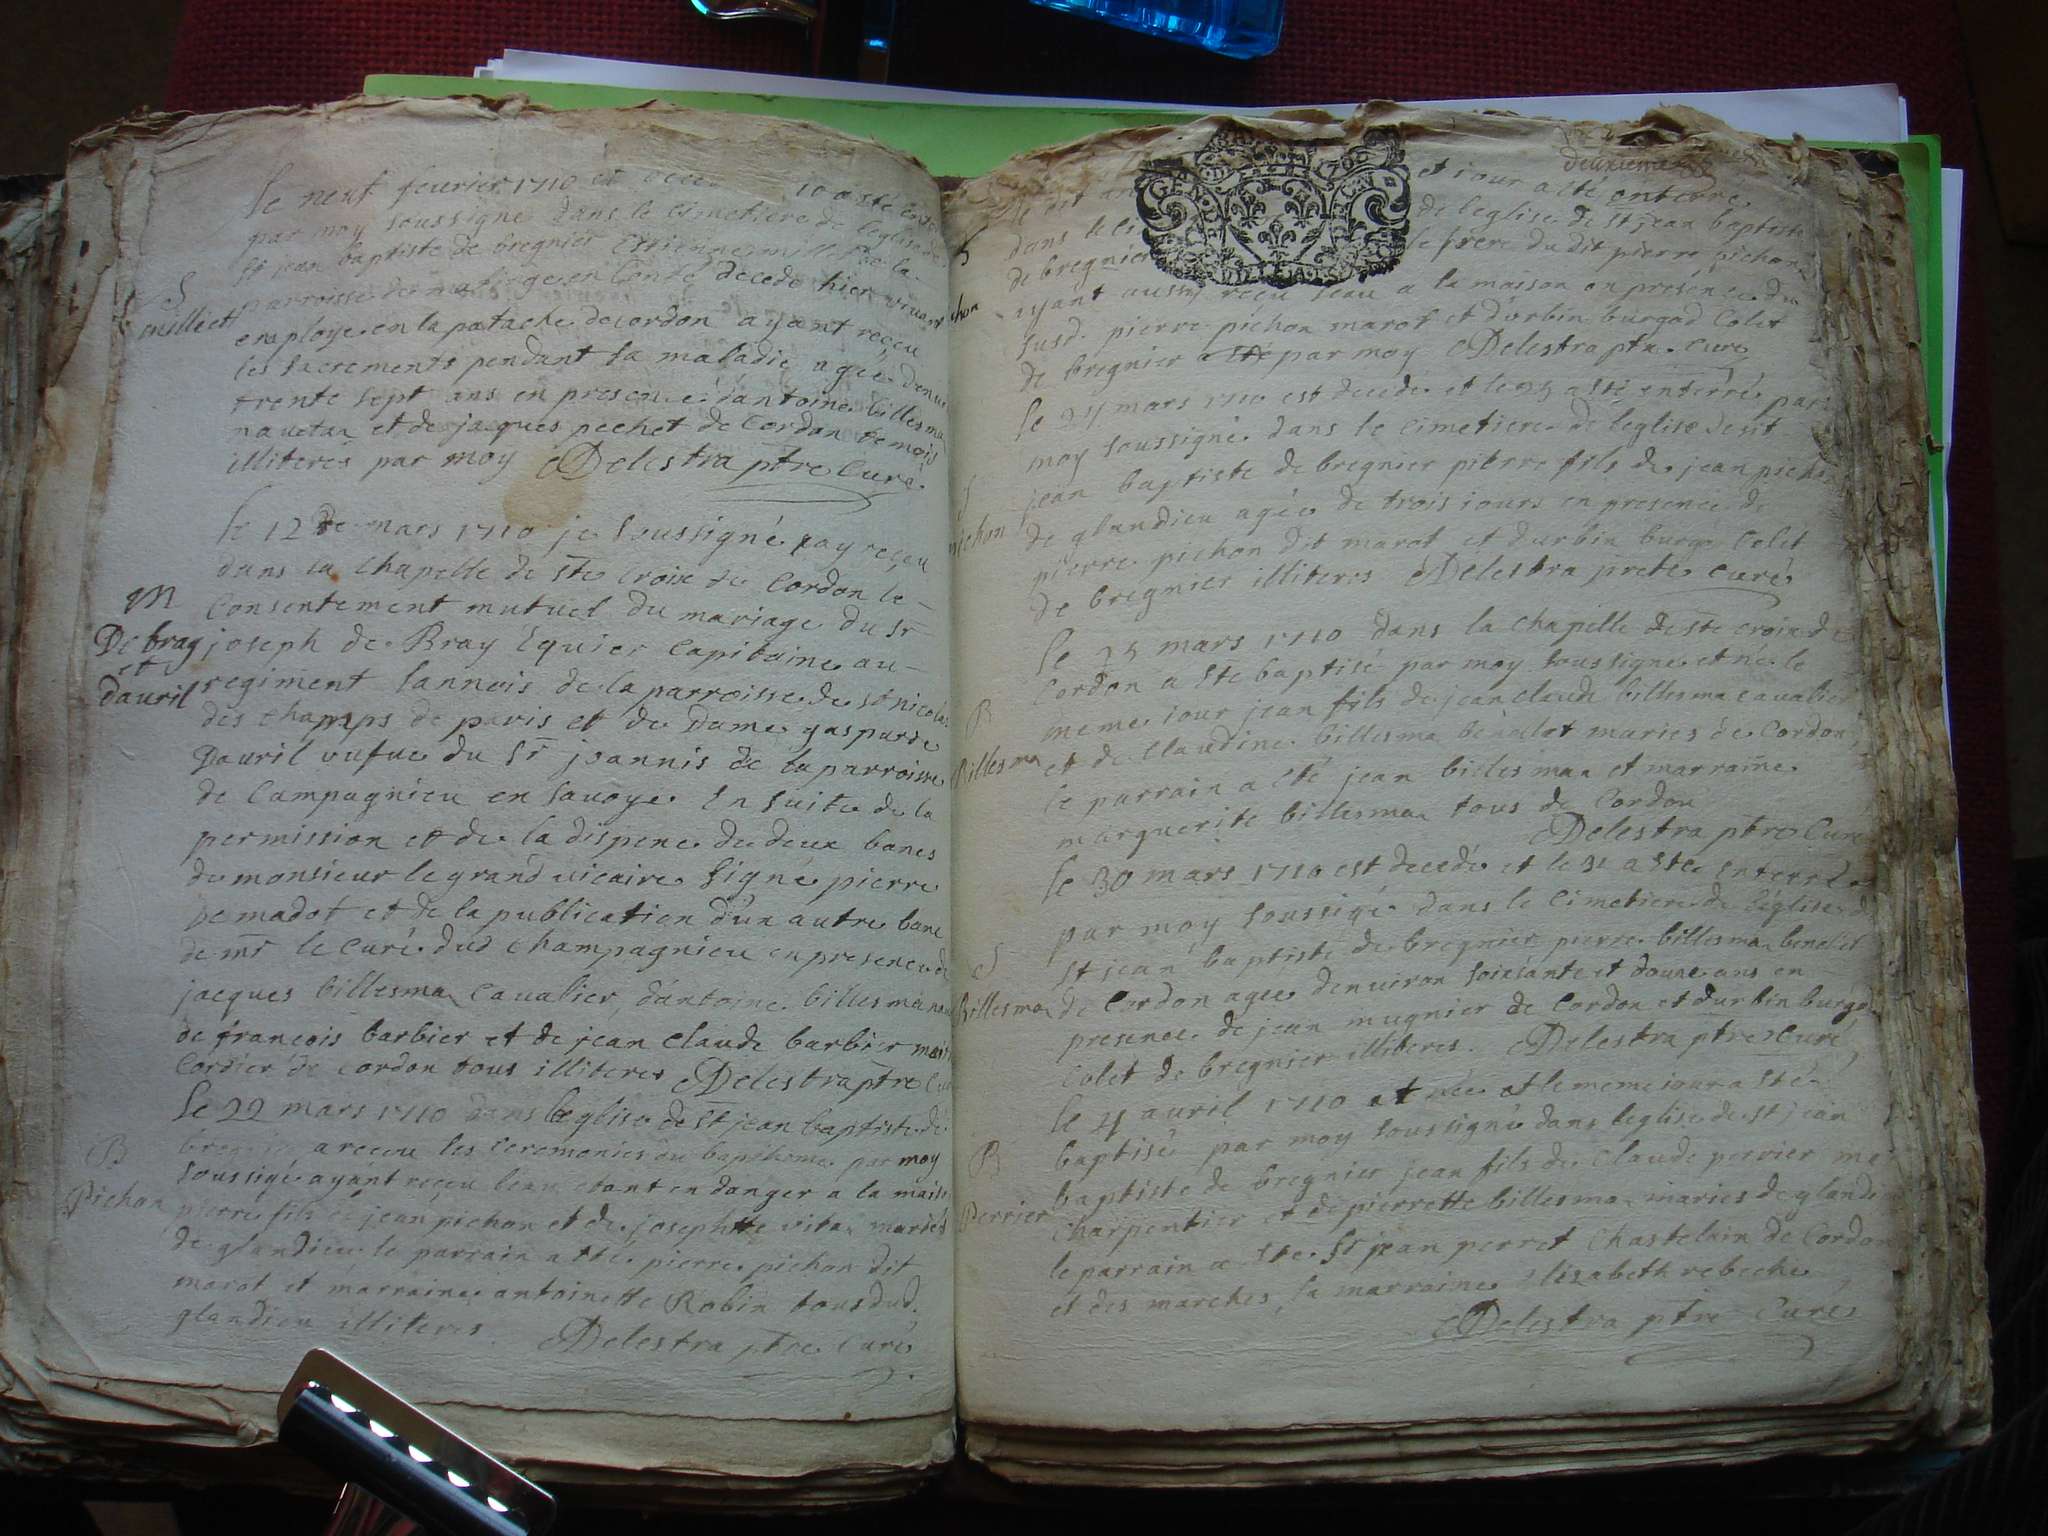 le neuf feurier 1710 et 10 a ste
par moy soussigné dans le cimetiere de leglise de
st jean baptiste de bregnier Estienne millet de la
parroisse de en Conté decedé hier viuant
S
milliet
employe en la patache de cordon ayant reçeu
les sacrements pendant sa maladie agée denui
trente sept ans en presence d'antoine billesma
nauetan et de jacques pechet de Cordon
illiteres par moy Delestra ptre Curé
le 12 de mars 1710 je soussigné ay reçeu
dans la chapelle de ste Croix de Cordon le
Consentement mutuel du mariage du Sr
M
De bray
et
dauril
joseph de Bray Equier Capitaine au
regiment Lannois de la parroisse de st nicolas
des champs de paris et de Dame gasparde
Dauril vufue du Sr joannis de la parroisse
de Campagnieu en Sauoye En suite de la
permission et de la dispene de deux bancs
de monsieur le grand vicaire signé pierre
de madot et de la publication d'un autre banc
de mr le Curé dud champagnieu en presence de
jacques billesmaz Caualier, d'antoine billesma
de francois barbier et de jean Claude barbier
Cordier de cordon tous illiteres Delestra ptre Cu
Le 22 mars 1710 dans leglise de St jean baptiste de
bregnier a reçeu les ceremonies du baptheme par moy
soussigé ayant reçeu leau etant en danger a la maison
B
Pichon
pierre fils de jean pichon et de josephtte vitaz mariés
de glandieu le parrain a ste pierre pichon dit
marot et marraine antoinette Robin tous dud.
glandieu illiteres Delestra ptre Curé
deuxieme
GEN DE
et iour a ste enterré
dans le ci de leglise de st jean baptiste
de bregnier le frere du dit pierre pichon
S
chon
ayant aussy reçu leau a la maison en présence du
susd. pierre pichon marot et d'urbin burgod Colet
de bregnier a ste par moy Delestra ptre Curé
le 24 mars 1710 est decedé et le 25 a sté enterré par
moy soussigné dans le cimetiere de leglise de st
jean baptiste de bregnier pierre fils de jean pichon
S
pichon
de glandieu agée de trois iours en presence de
pierre pichon dit marot et d'urbin burgo Colet
de bregnier illiteres Delestra pretre Curé
le 25 mars 1710 dans la chapelle de ste croix de
Cordon a ste baptisé par moy soussigné et né le
B
Billesma
meme iour jean fils de jean claude billesma caualier
et de Claudine billesma benalot maries de Cordon
le parrain a sté jean billesmaz et marraine
marguerite billesmaz tous de Cordon
Delestra ptre Curé
le 30 mars 1710 est decedé et le 31 a ste enterré
par moy soussigé dans le cimetiere de leglise de
S
Billesmaz
st jean baptiste de bregnier pierre billesmaz
de Cordon agee denuiron soixante et douze ans en
presence de jean mugnier de Cordon et d'urbin burgo
Colet de bregnier illiteres. Delestra ptre Curé
le 4 auril 1710 et née et le meme iour a sté
baptisé par moy soussigné dans leglise de st jean
B
Perrier
baptiste de bregnier jean fils de Claude perrier me
charpentier et de pierrette billesmaz maries de glandieu
le parrain a ste Sr jean perret Chastelain de Cordon
et des marches, la marraine elisabeth rebeche
Delestra ptre Curé